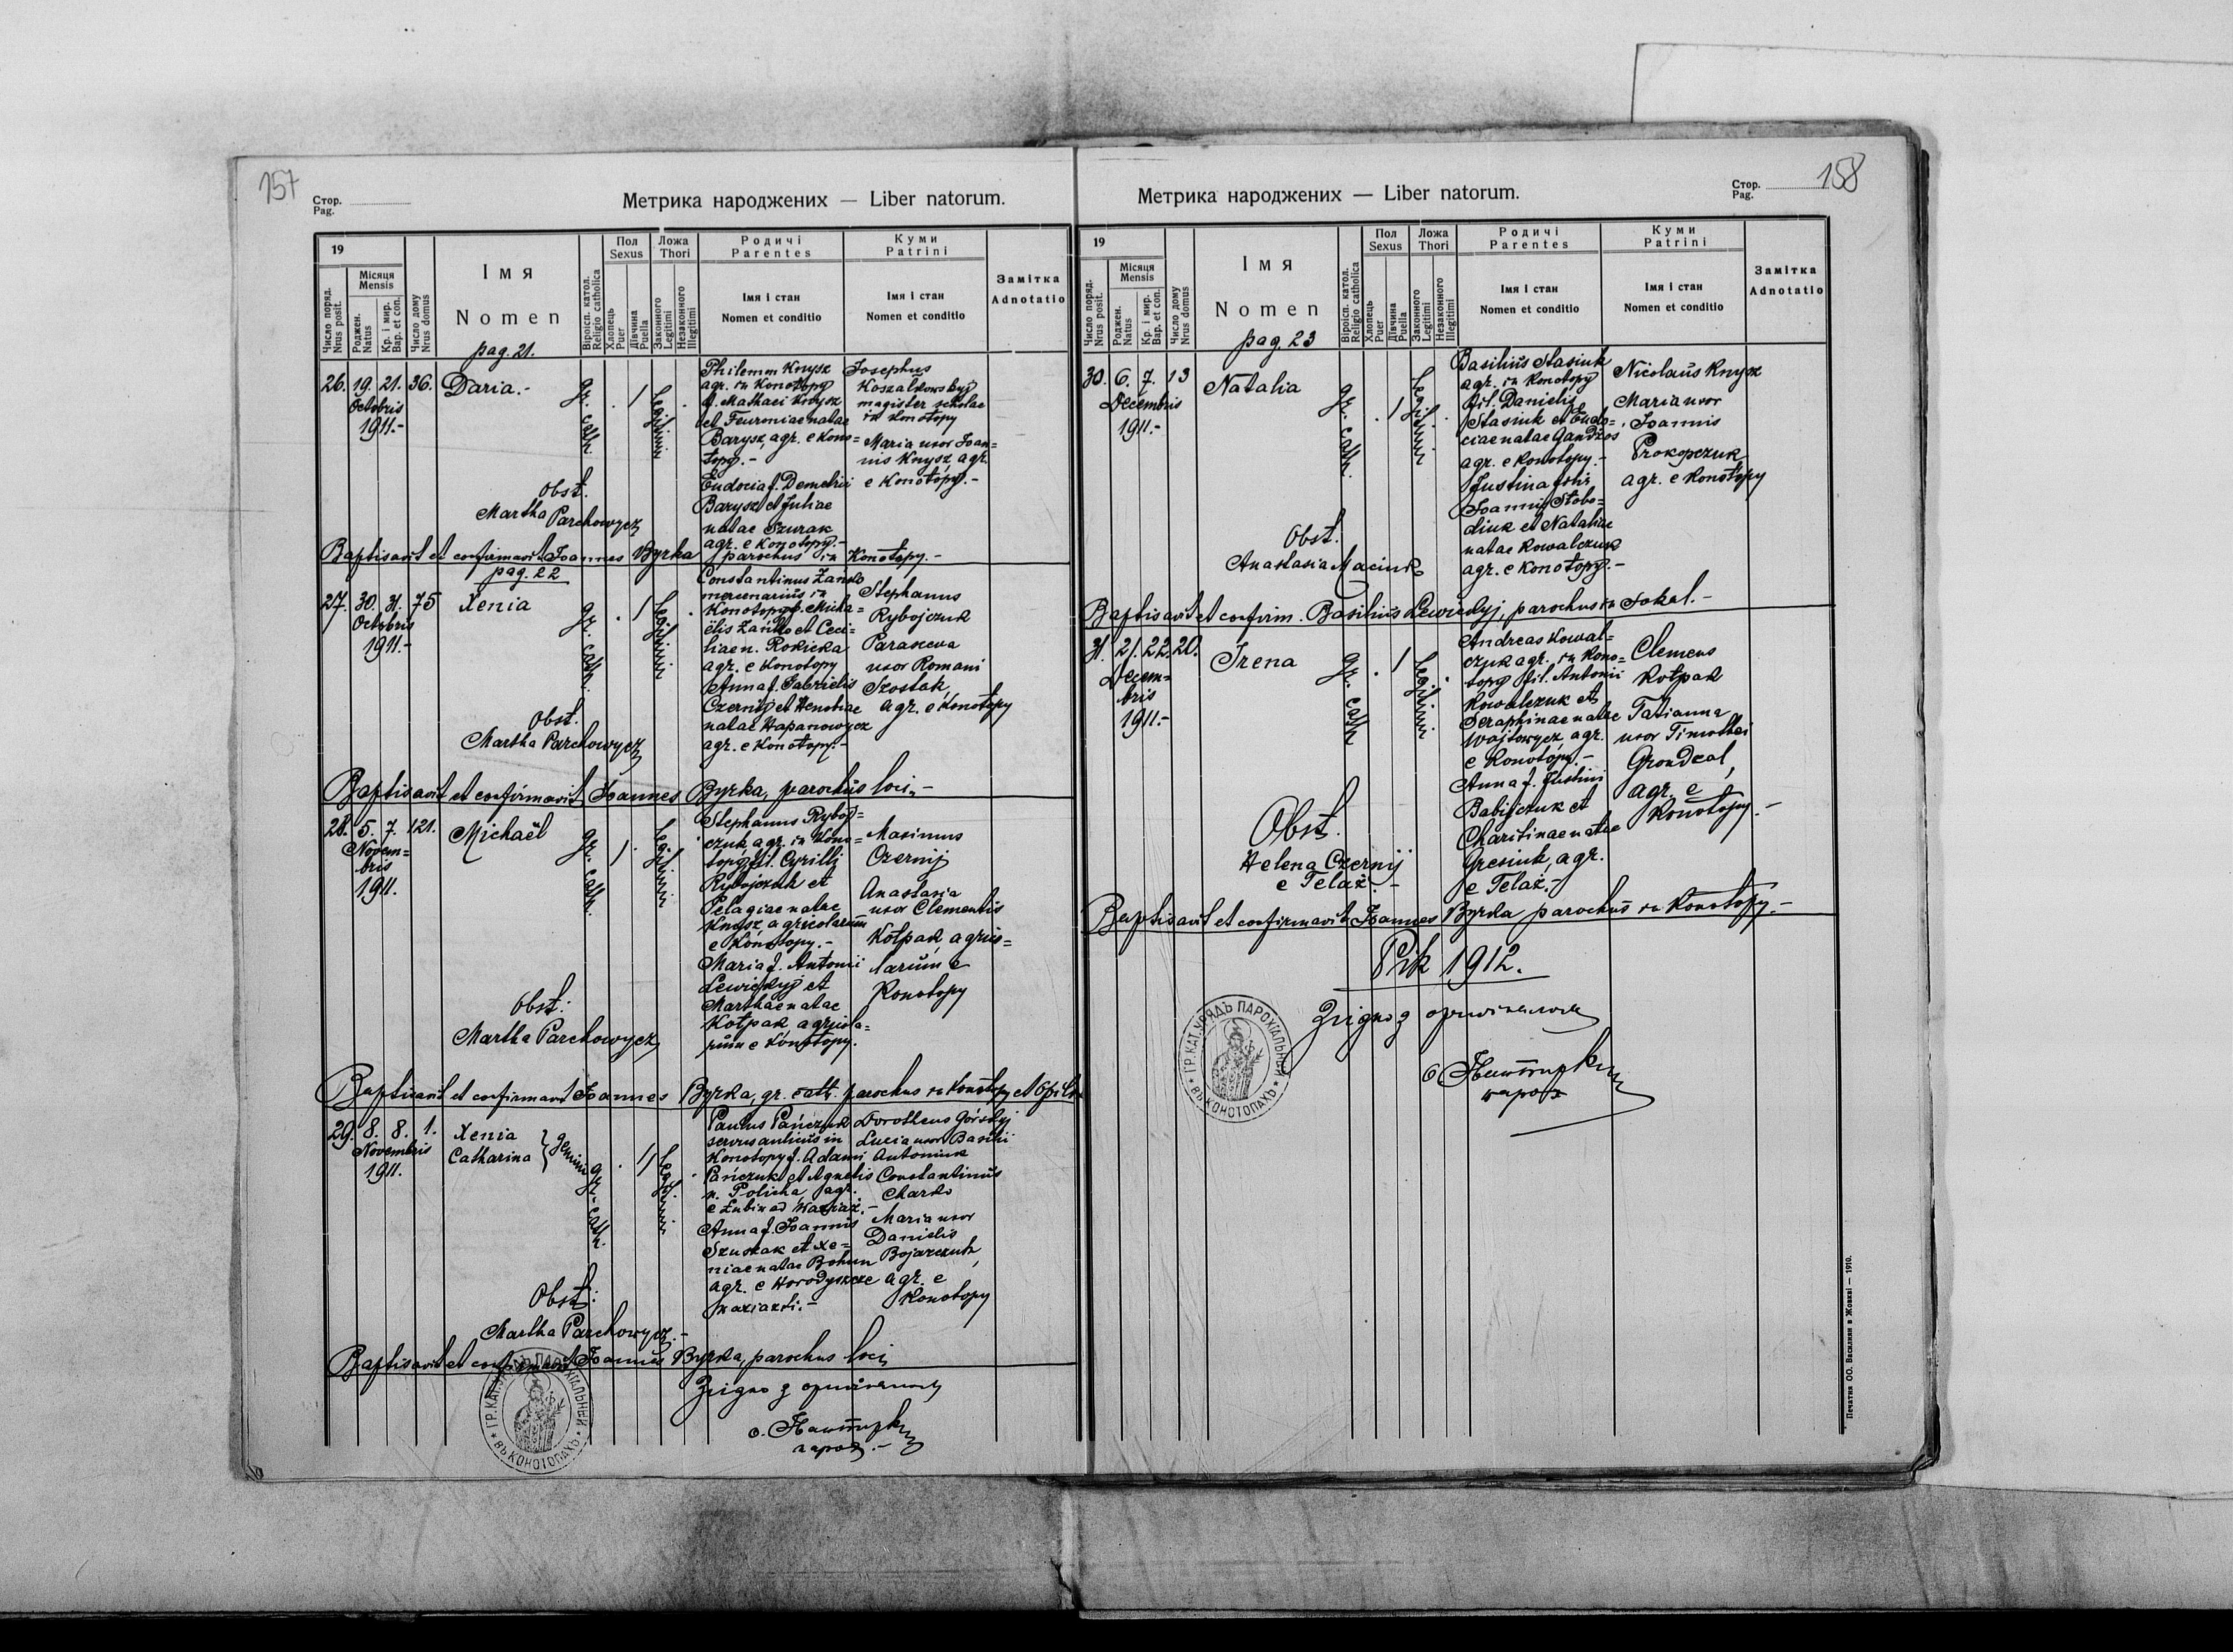 157
Стор.
Pag.
Метрика народжених — Liber natorum.
19
Число поряд.
Nrus posit.
Місяця
Mensis
Роджен.
Natus
Кр. і мир.
Bap. et con.
Число дому
Nrus domus
Імя
Nomen
pag. 21.
Віроісп. катол.
Religio catholica
Пол
Sexus
Хлопець
Puer
Дівчина
Puella
Ложа
Thori
Законного
Legitimi
Незаконного
Illegitimi
Родичі
Parentes
Імя і стан
Nomen et conditio
Куми
Patrini
Імя і стан
Nomen et conditio
Замітка
Adnotatio
26. 19. 21. 36. Daria.-
Octobris
1911.-
gr. cath.
. 1
Legitimi .
Philemon Knysz
agr. in Konotopy
f. Mathaei Knysz
et Feuroniae natae
Barysz, agr. e Kono=
topy.-
Eudocia f. Demetrii
Barysz et Juliae
natae Szurak
agr. e Konotopy.-
Josephus
Koszałkowskyj
magister scholae
in Konotopy
Maria uxor Joan=
nis Knysz, agr.
e Konotopy.-
Obst.
Martha Parchowycz
Baptisavit et confirmavit Joannes Byrka parochus in Konotopy.-
pag. 22
27. 30. 31. 75 Xenia
Octobris
1911.-
gr. cath.
. 1
Legitimi .
Constantinus Zańko
mercenarius in
Konotopy f. Micha=
ëlis Zańko et Ceci=
liae n. Rokicka
agr. e Konotopy
Anna f. Gabrielis
Czernij et Henobiae
natae Hapanowycz
agr. e Konotopy.-
Stephanus
Rybojczuk
Parasceva
uxor Romani
Szostak,
agr. e Konotopy
Obst.
Martha Parchowycz
Baptisavit et confirmavit Joannes Byrka, parochus loci.-
28. 5. 7. 121. Michaël
Novem=
bris
1911.
gr. cath.
1 .
Legitimi .
Stephanus Ryboj=
czuk, agr. in Kono=
topy, fil. Cyrilli
Rybojczuk et
Pelagiae natae
Knysz, agricolarum
e Konotopy.-
Maria f. Antonii
Lewickyj et
Marthae natae
Kotpak, agricola=
rum e Konotopy.
Maximus
Czernij
Anastasia
uxor Clementis
Kotpak, agrico=
larum e
Konotopy
Obst:
Martha Parchowycz
Baptisavit et confirmavit Joannes Byrka, gr. cath. parochus in Konotopy et
29. 8. 8. 1. Xenia
Catharina } gemini
Novembris
1911.
gr. cath.
. 11
Legitimi .
Paulus Pańczuk
servus aulicus in
Konotopy f. Adami
Pańczuk et Agnetis
n. Policha, agr.
e Łubin ad Warjaż.-
Anna f. Joannis
Szuszak et Xe=
niae natae Bohun
agr. e Horodyszcze
Dorotheus Górskyj
Lucia uxor Basilii
Antoniuk
Constantinus
Charko
Maria uxor
Danielis
Bojarczuk,
agr. e
Konotopy
Obst:
Martha Parchowycz.-
Baptisavit et confirmavit Joannes Byrka, parochus loci
Згідно з оригіналом
о.
парох.-
ГР. КАТ. УРЯДЪ ПАРОХІАЛЬНЫЙ ВЪ КОНОТОПАХЪ
158
Стор.
Pag.
Метрика народжених — Liber natorum.
19
Число поряд.
Nrus posit.
Місяця
Mensis
Роджен.
Natus
Кр. і мир.
Bap. et con.
Число дому
Nrus domus
Імя
Nomen
pag. 23
Віроісп. катол.
Religio catholica
Пол
Sexus
Хлопець
Puer
Дівчина
Puella
Ложа
Thori
Законного
Legitimi
Незаконного
Illegitimi
Родичі
Parentes
Імя і стан
Nomen et conditio
Куми
Patrini
Імя і стан
Nomen et conditio
Замітка
Adnotatio
30. 6. 7. 13 Natalia
Decembris
1911.-
gr. cath.
. 1
Legitimi .
Basilius Stasiuk
agr. in Konotopy
fil. Danielis
Stasiuk et Eudo=
ciae natae Gandzos
agr. e Konotopy.-
Justina filia
Joannis Słobo=
diuk et Nataliae
natae Kowalczuk
agr. e Konotopy.-
Nicolaus Knysz
Maria uxor
Joannis
Prokopczuk
agr. e Konotopy
Obst.
Anastasia Maciuk
Baptisavit et confirm. Basilius Lewickyj, parochus in Sokal.-
31. 21. 22. 20. Irena
Decem=
bris
1911.-
gr. cath
. 1
Legitimi .
Andreas Kowal=
czuk agr. in Kono=
topy fil. Antonii
Kowalczuk et
Seraphinae natae
Wojtowycz agr.
e Konotopy.-
Anna f. Justini
Babijczuk et
Charitinae natae
Gresiuk, agr.
e Telaż.-
Clemens
Kotpak
Tatianna
uxor Timothei
Grondzal,
agr. e
Konotopy.-
Obst.
Helena Czernij
e Telaż.-
Baptisavit et confirmavit Joannes Byrka parochus in Konotopy.-
Рік 1912.
Згідно з оригіналом
о
парох
ГР. КАТ. УРЯДЪ ПАРОХІАЛЬНЫЙ ВЪ КОНОТОПАХЪ
Печатня ОО. Василиян в Жовкві — 1910.